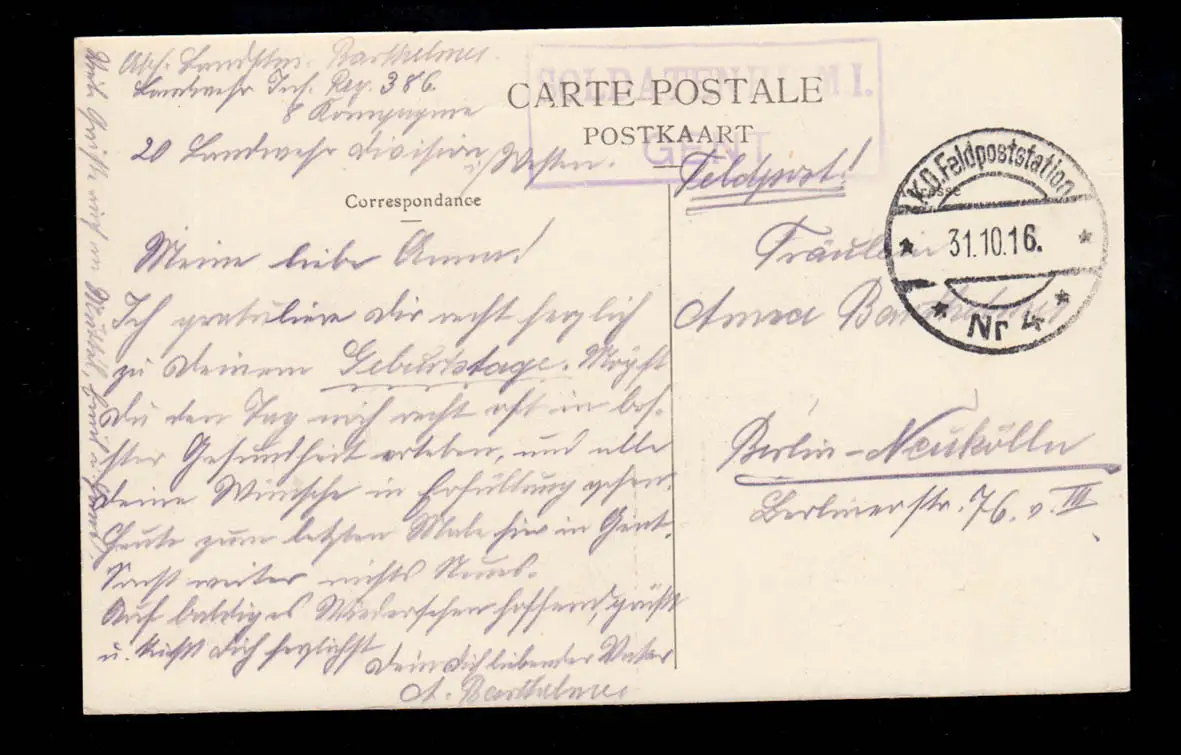 Abs. Landstm. Barthelmes
Landwehr Inf. Reg. 386.
8 Kompagnie
20 Landwehr Division, Westen.
SOLDATENHEIM I.
GENT
CARTE POSTALE
POSTKAART
Feldpost!
Correspondance
K.D. Feldpoststation
31.10.16.
Nr 4
Meine liebe Anna!
Ich gratuliere Dir recht herzlich
zu Deinem Geburtstage. Mögst
Du den Tag noch recht oft in bes-
ster Gesundheit erleben, und alle
Deine Wünsche in Erfüllung gehen.
Heute zum letzten Male hier in Gent.
Sonst weiter nichts Neues.
Auf baldiges Wiedersehen hoffend, grüßt
u. küßt Dich herzlichst
Dein Dich liebender Vater
A. Barthelmes
Viele Grüße auch an
Fräulein
Anna Barthelmes
Berlin-Neukölln
Berlinerstr. 76. v. III